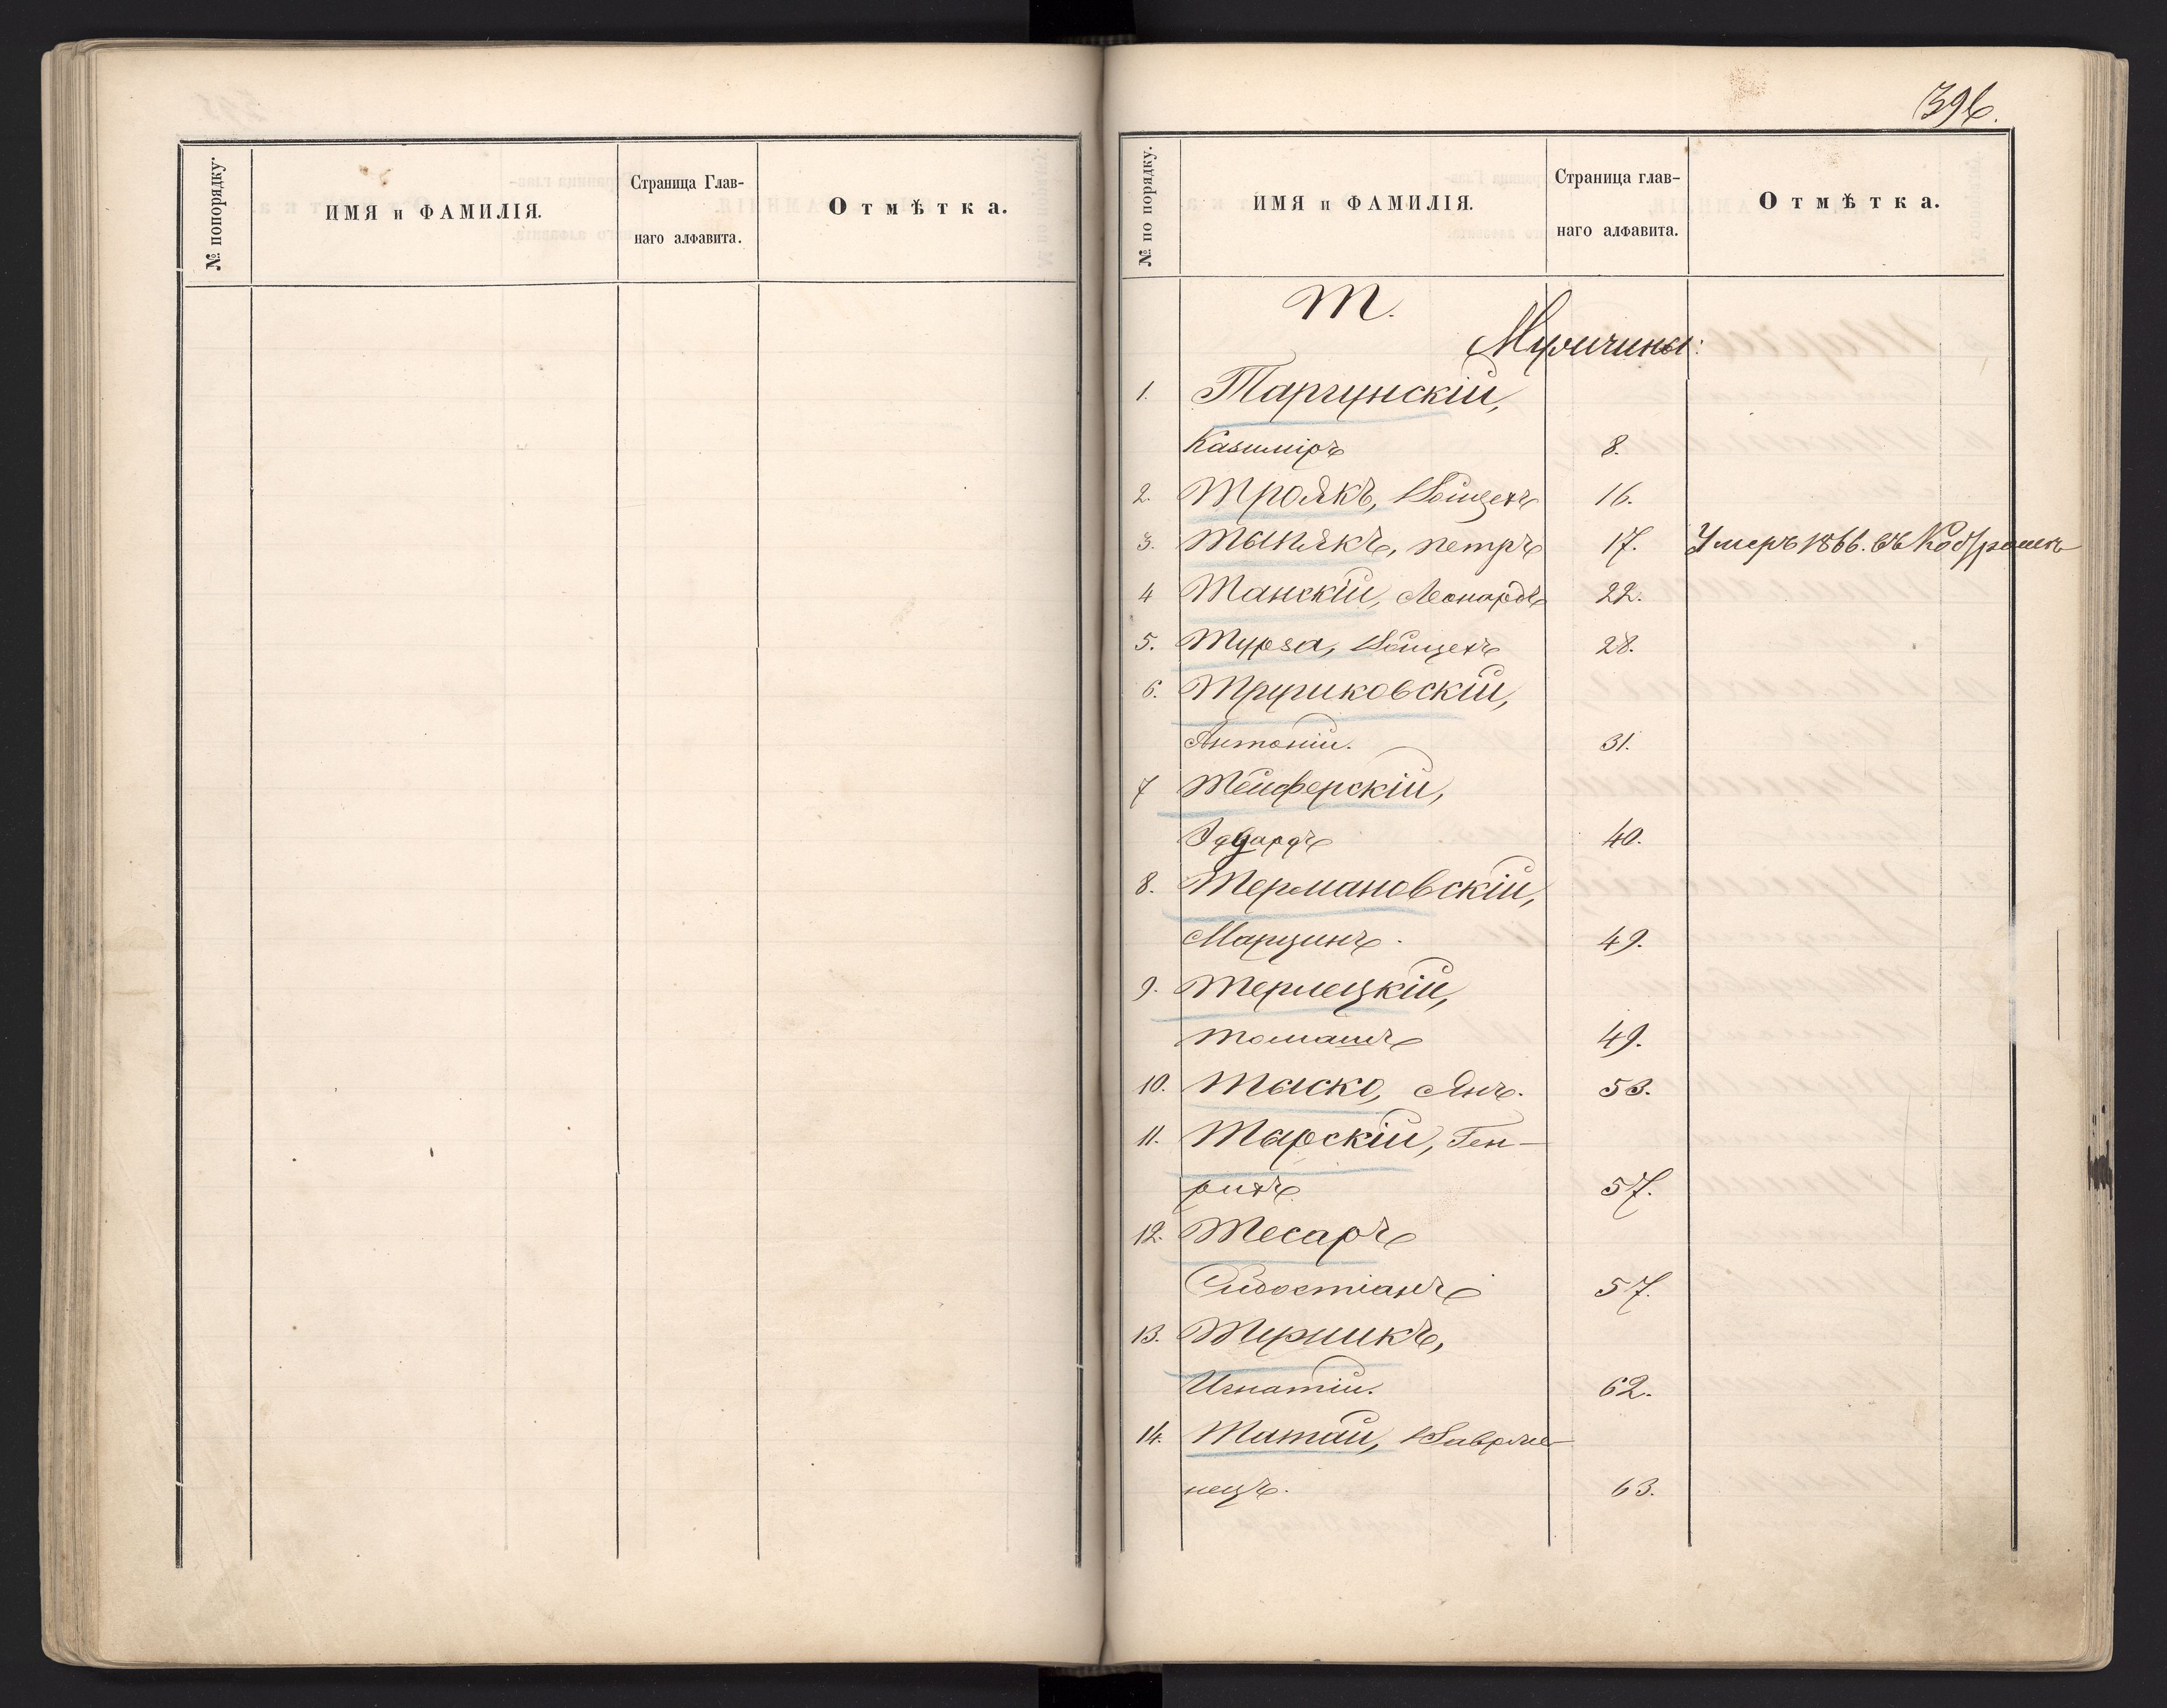 396.
№ попорядку.
ИМЯ и ФАМИЛІЯ.
Страница Глав-
наго алфавита.
Отмѣтка.
№ по порядку.
ИМЯ и ФАМИЛІЯ.
Страница глав-
наго алфавита.
Отмѣтка.
Т.
Мужчины:
1. Таргунскій,
Казимиръ 8.
2. Троякъ, Войцехъ 16.
3. Тынякъ, Петръ 17. Умеръ 1866. въ
4 Танскій, Леонардъ 22.
5. Турза, Войцехъ 28.
6. Тружиковскій,
Антоній. 31.
7 Тейферскій,
Эдуардъ 40.
8. Термановскій,
Марцинъ. 49.
9. Терлецкій,
Томашъ 49.
10. Тыско, Янъ. 53.
11. Тарскій, Ген-
рихъ 57.
12. Тесаръ
57.
13.
Игнатій. 62.
14. Татай, Вавржи-
нецъ. 63.